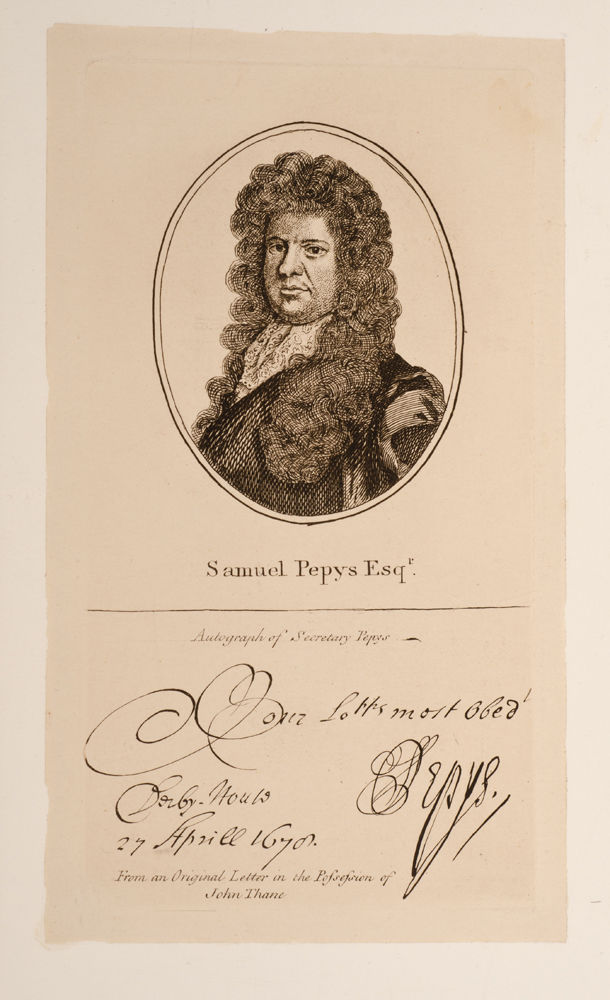 Samuel Pepys Esqr.
Autograph of Secretary Pepys
Your Lopps most Obedt
SPepys.
Derby-House
27 Aprill 1678.
From an Original Letter in the Poſseſsion of
John Thane